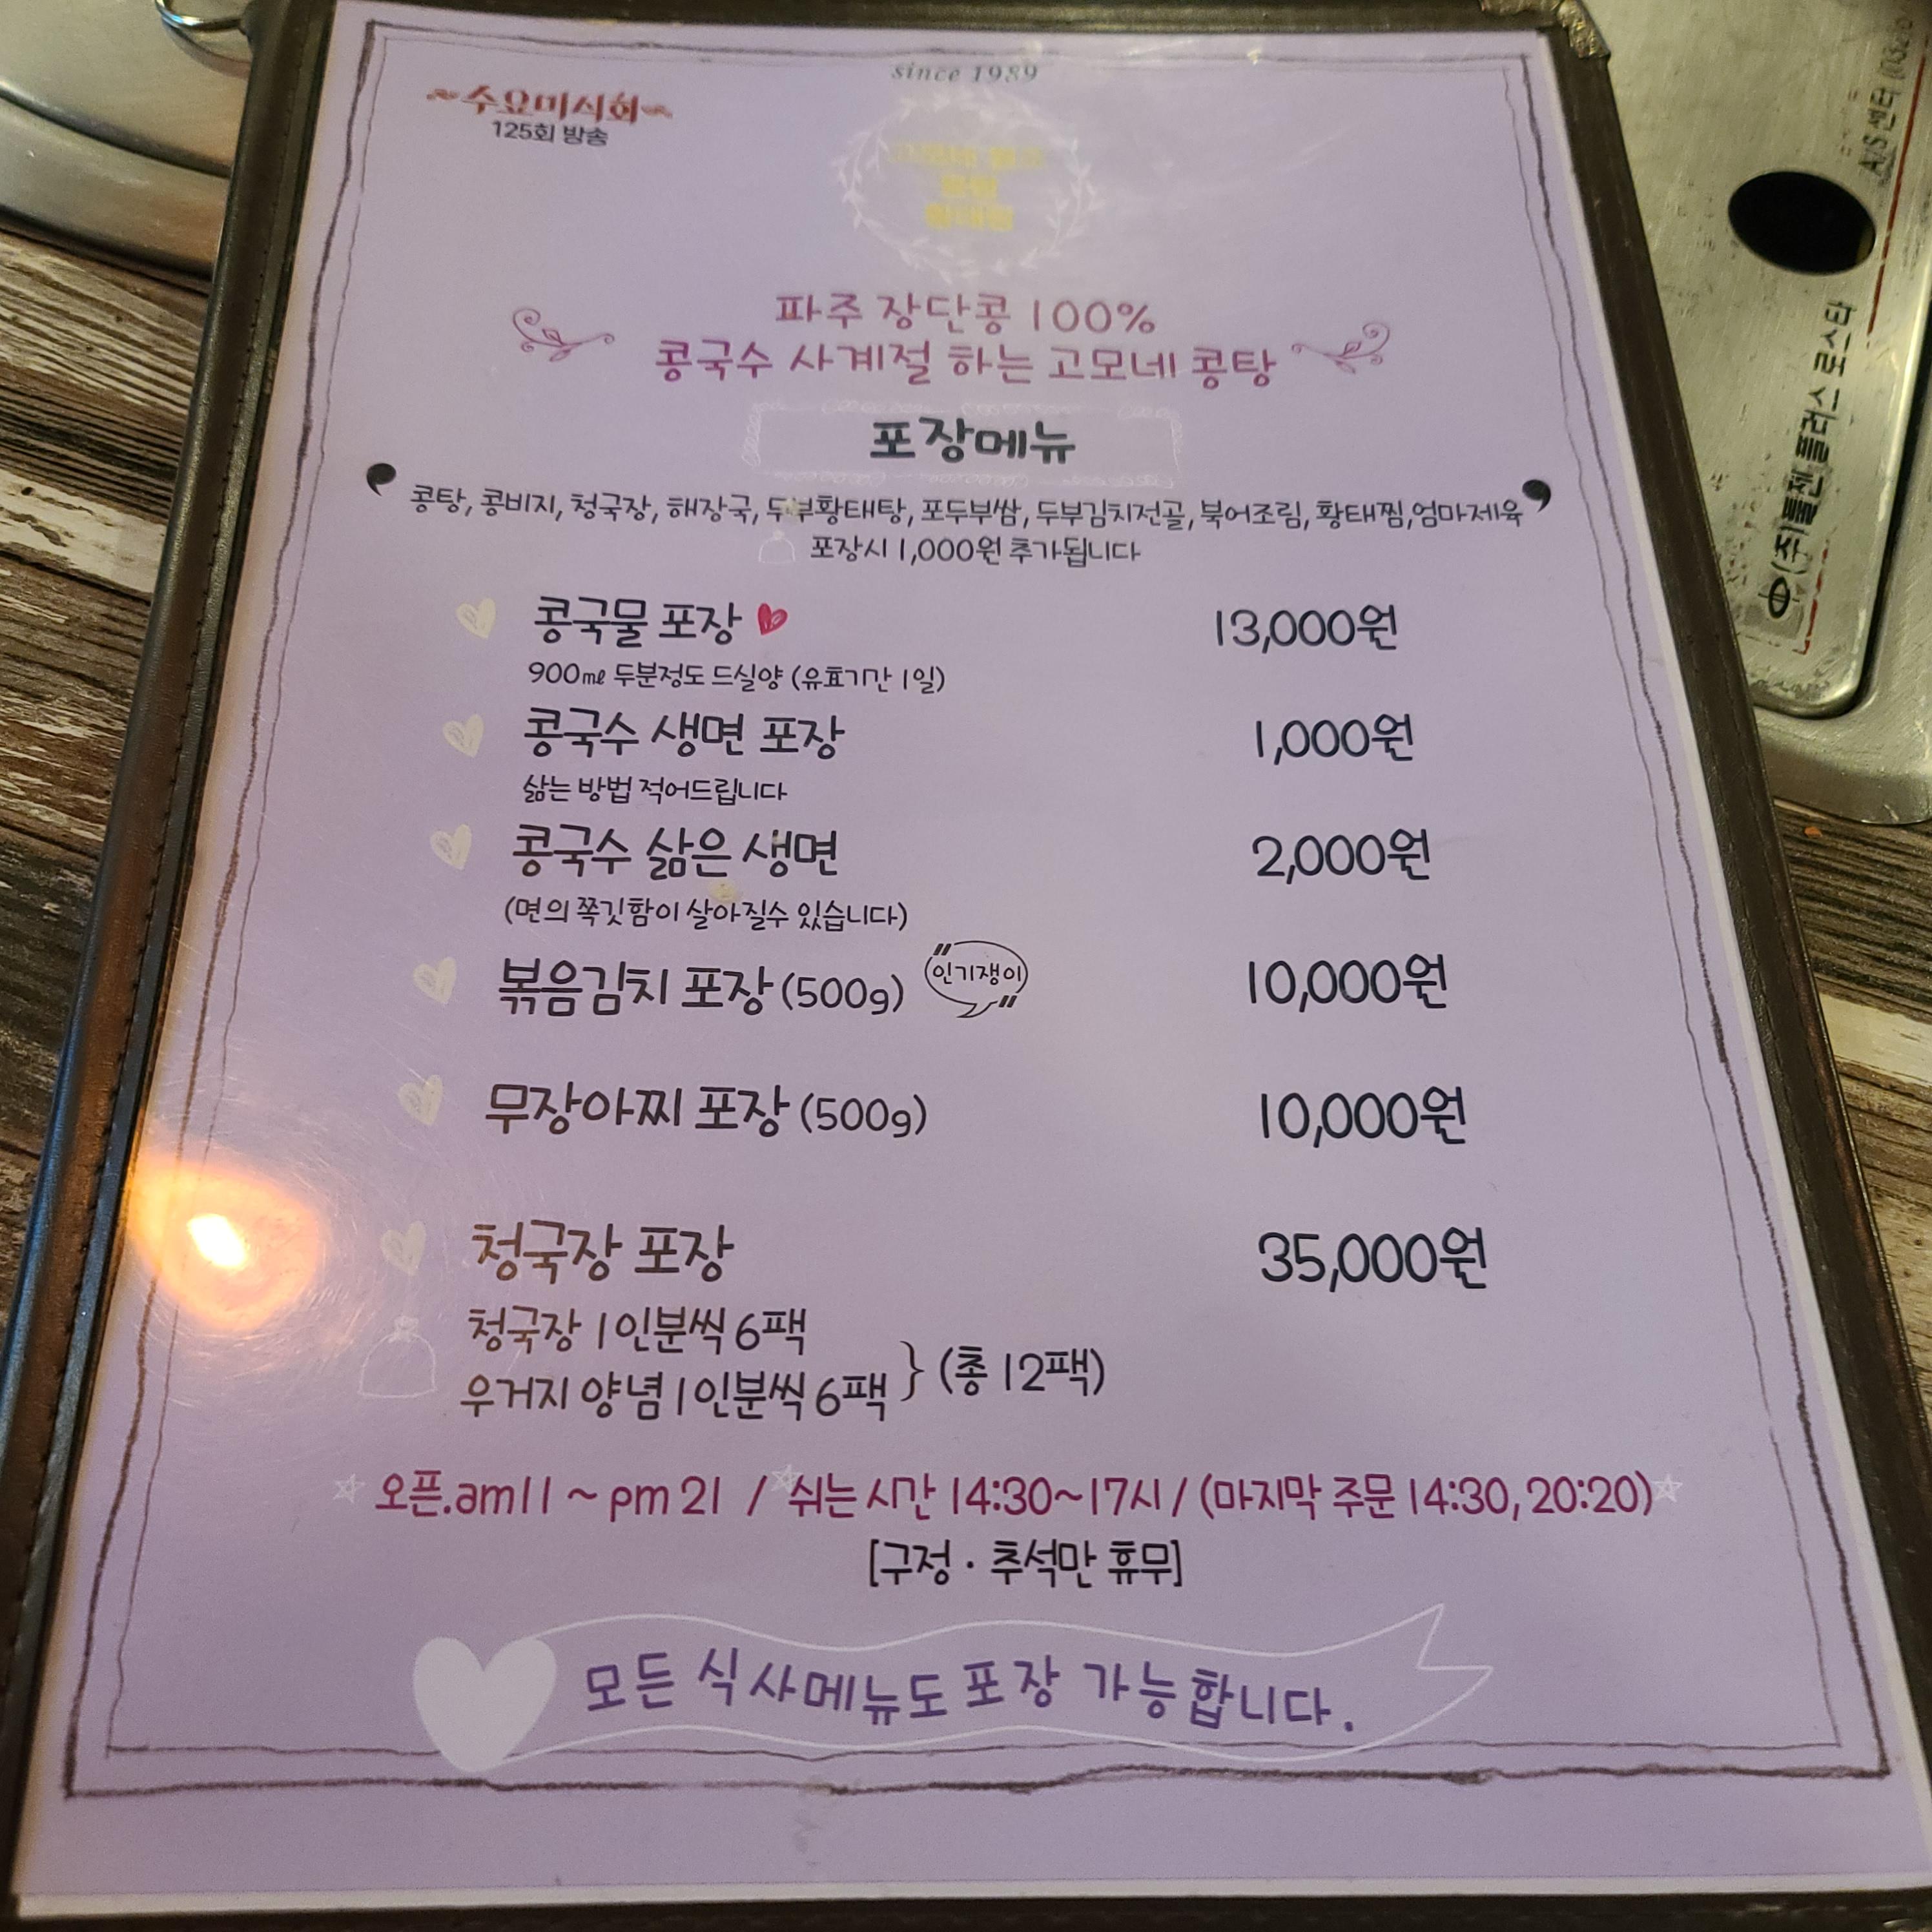 since 1989
수요미식회
125회 방송
파주 장단콩 100%
콩국수 사계절 하는 고모네 콩탕
포장메뉴
콩탕, 콩비지, 청국장, 해장국, 두부황태탕, 포두부쌈, 두부김치전골, 북어조림, 황태찜,엄마제육
포장시 1,000원 추가됩니다
콩국물 포장 13,000원
900㎖ 두분정도 드실양 (유효기간 1일)
콩국수 생면 포장 1,000원
삶는 방법 적어드립니다
콩국수 삶은 생면 2,000원
(면의 쪽깃함이 살아질수 있습니다)
볶음김치 포장 (500g) "인기쟁이" 10,000원
무장아찌 포장 (500g) 10,000원
청국장 포장 35,000원
청국장 1인분씩 6팩
우거지 양념 1인분씩 6팩 } (총 12팩)
오픈.am11 ~ pm 21 / 쉬는 시간 14:30~17시 / (마지막 주문 14:30, 20:20)
[구정 · 추석만 휴무]
모든 식사메뉴도 포장 가능합니다.
A/S 센터
플러스 로스타